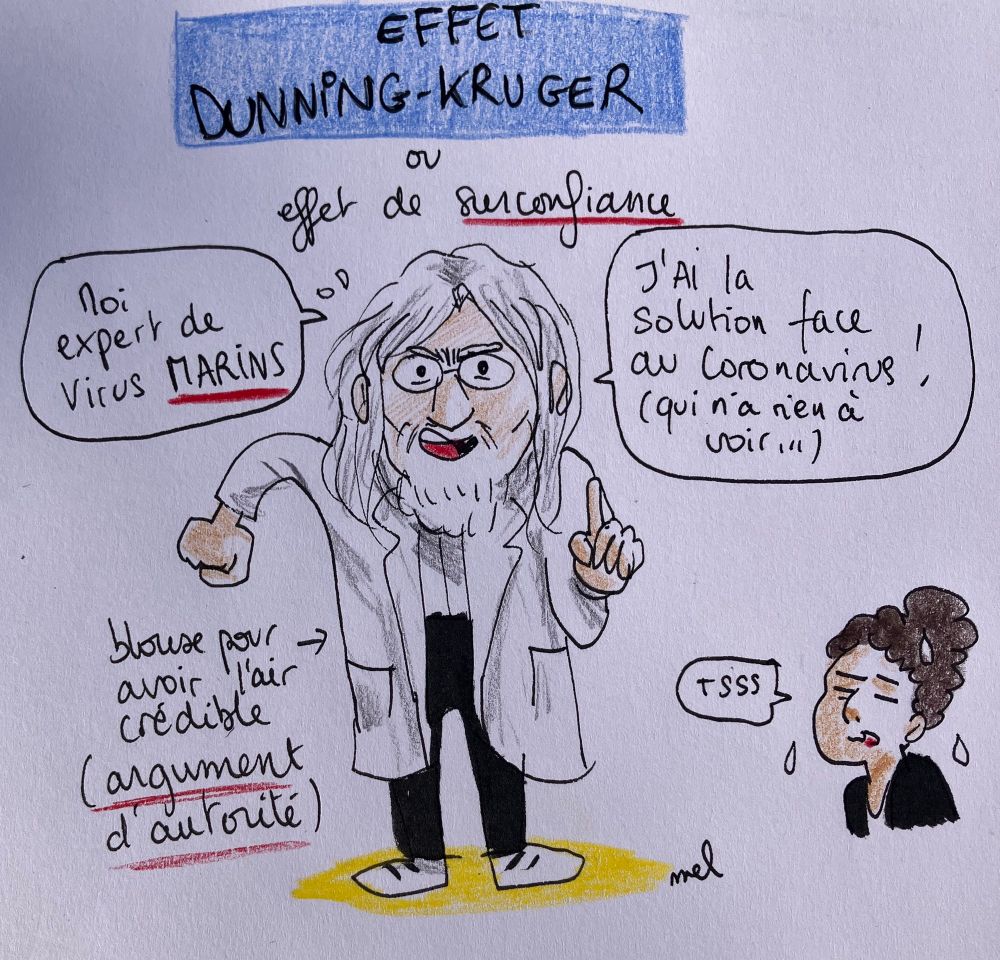 EFFET
DUNNING-KRUGER
ou
effet de surconfiance
Moi
expert de
virus MARINS
J'AI la
solution face
au Coronavirus !
(qui n'a rien à
voir...)
blouse pour →
avoir l'air
crédible
(argument
d'autorité)
TSSS
mel